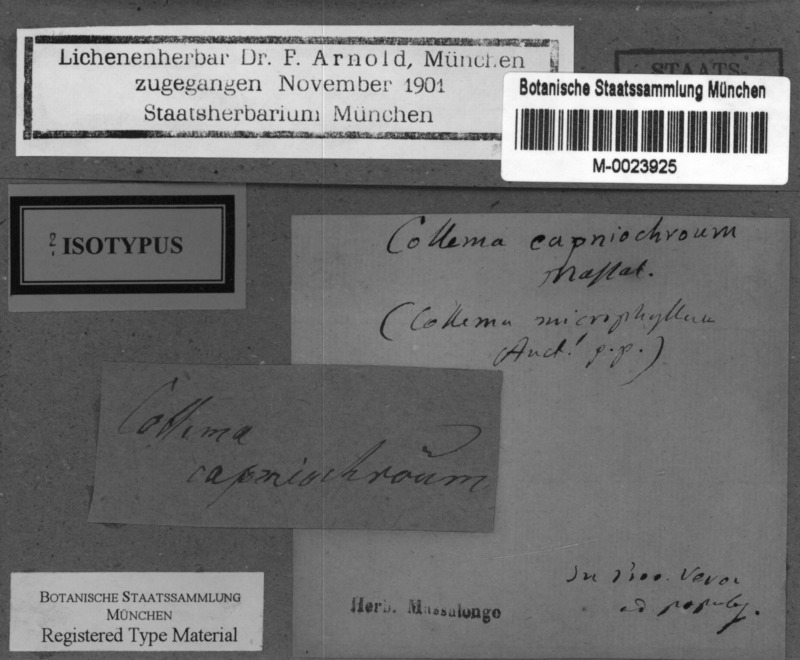 Lichenenherbar Dr. F. Arnold, München
zugegangen November 1901
Staatsherbarium München
STAATS-
Botanische Staatssammlung München
M-0023925
? ISOTYPUS
Collema capniochroum
Massal.
(Collema microphyllum
Auct! p.p.)
Collema
capniochroŭm
In Prov. Veron
ad populos.
Herb. Massalongo
BOTANISCHE STAATSSAMMLUNG
MÜNCHEN
Registered Type Material